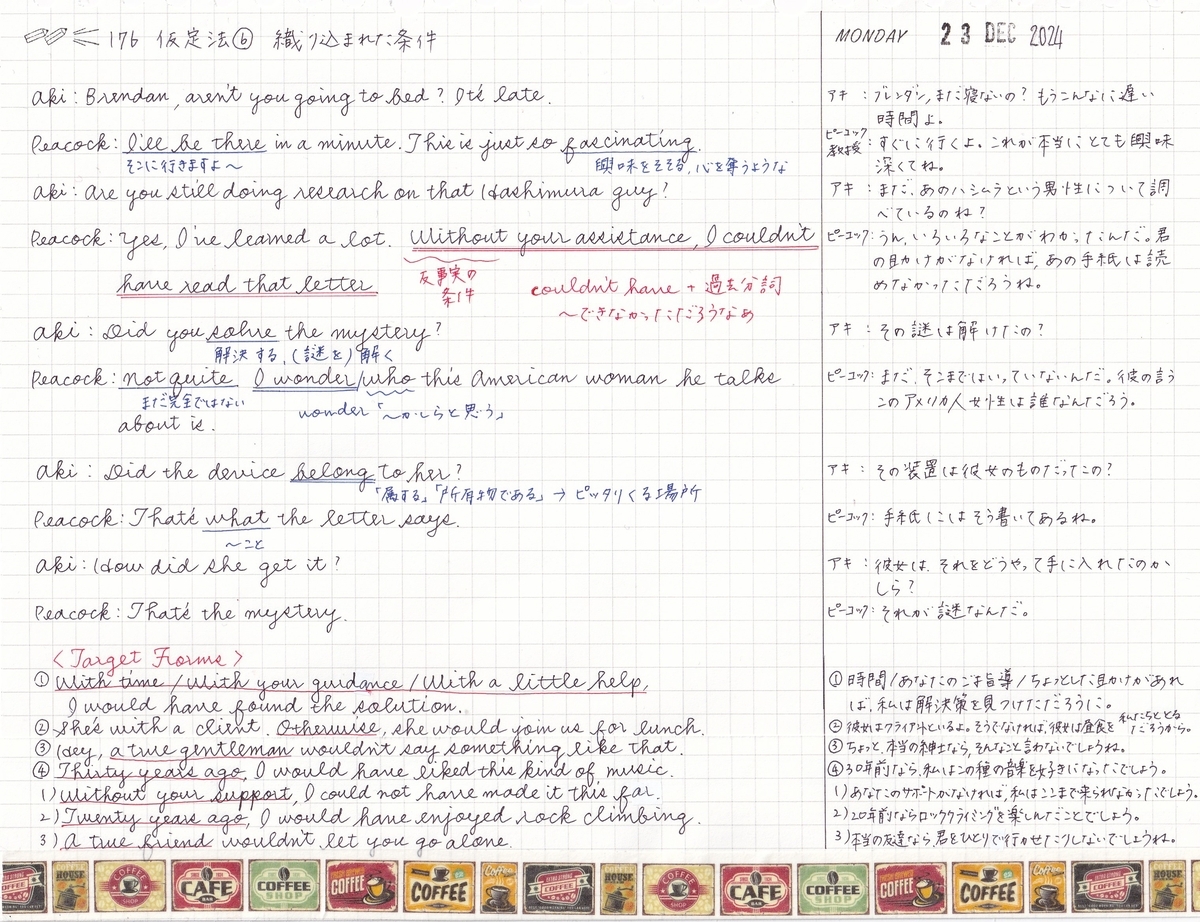 176 仮定法⑥ 織り込まれた条件
MONDAY 23 DEC 2024
Aki : Brendan, aren't you going to bed? It's late.
Peacock: I'll be there in a minute. This is just so fascinating.
そこに行きますよ〜
興味をそそる, 心を奪うような
Aki : Are you still doing research on that Hashimura guy?
Peacock: Yes, I've learned a lot. Without your assistance, I couldn't
have read that letter
反事実の
条件
couldn't have + 過去分詞
〜できなかっただろうなぁ
Aki : Did you solve the mystery?
解決する, (謎を) 解く
Peacock: Not quite. I wonder/who this American woman he talks
まだ完全ではない
wonder「〜かしらと思う」
about is.
Aki : Did the device belong to her?
「属する」「所有物である」→ ピッタリくる場所
Peacock: That's what the letter says.
〜こと
Aki : How did she get it?
Peacock: That's the mystery.
<Target Forms>
① With time / With your guidance / With a little help,
I would have found the solution.
② She's with a client. Otherwise, she would join us for lunch.
③ Hey, a true gentleman wouldn't say something like that.
④ Thirty years ago, I would have liked this kind of music.
1) Without your support, I could not have made it this far.
2) Twenty years ago, I would have enjoyed rock climbing.
3) A true friend wouldn't let you go alone.
アキ : ブレンダン, まだ寝ないの? もうこんなに遅い
時間よ。
ピーコック
教授 : すぐに行くよ。これが本当にとても興味
深くてね。
アキ : まだ, あのハシムラという男性について調
べているのね?
ピーコック: うん, いろいろなことがわかったんだ。君
の助けがなければ, あの手紙は読
めなかっただろうね。
アキ : その謎は解けたの?
ピーコック: まだ, そこまではいっていないんだ。彼の言う
このアメリカ人女性は誰なんだろう。
アキ : その装置は彼女のものだったの?
ピーコック: 手紙にはそう書いてあるね。
アキ : 彼女は, それをどうやって手に入れたのか
しら?
ピーコック: それが謎なんだ。
① 時間/あなたのご指導/ちょっとした助けがあれ
ば, 私は解決策を見つけただろうに。
② 彼女はクライアントといるよ。そうでなければ, 彼女は昼食を私たちととるだろうから。
③ ちょっと, 本当の紳士なら, そんなこと言わないでしょうね。
④ 30年前なら, 私はこの種の音楽を好きになったでしょう。
1) あなたのサポートがなければ, 私はここまで来られなかったでしょう。
2) 20年前ならロッククライミングを楽しんだことでしょう。
3) 本当の友達なら, 君をひとりで行かせたりしないでしょうね。
COFFEE HOUSE
COFFEE SHOP
CAFE BAR
COFFEE SHOP
COFFEE
COFFEE
COFFEE
COFFEE
HOUSE
COFFEE SHOP
CAFE BAR
COFFEE SHOP
COFFEE
COFFEE
COFFEE
HOUSE